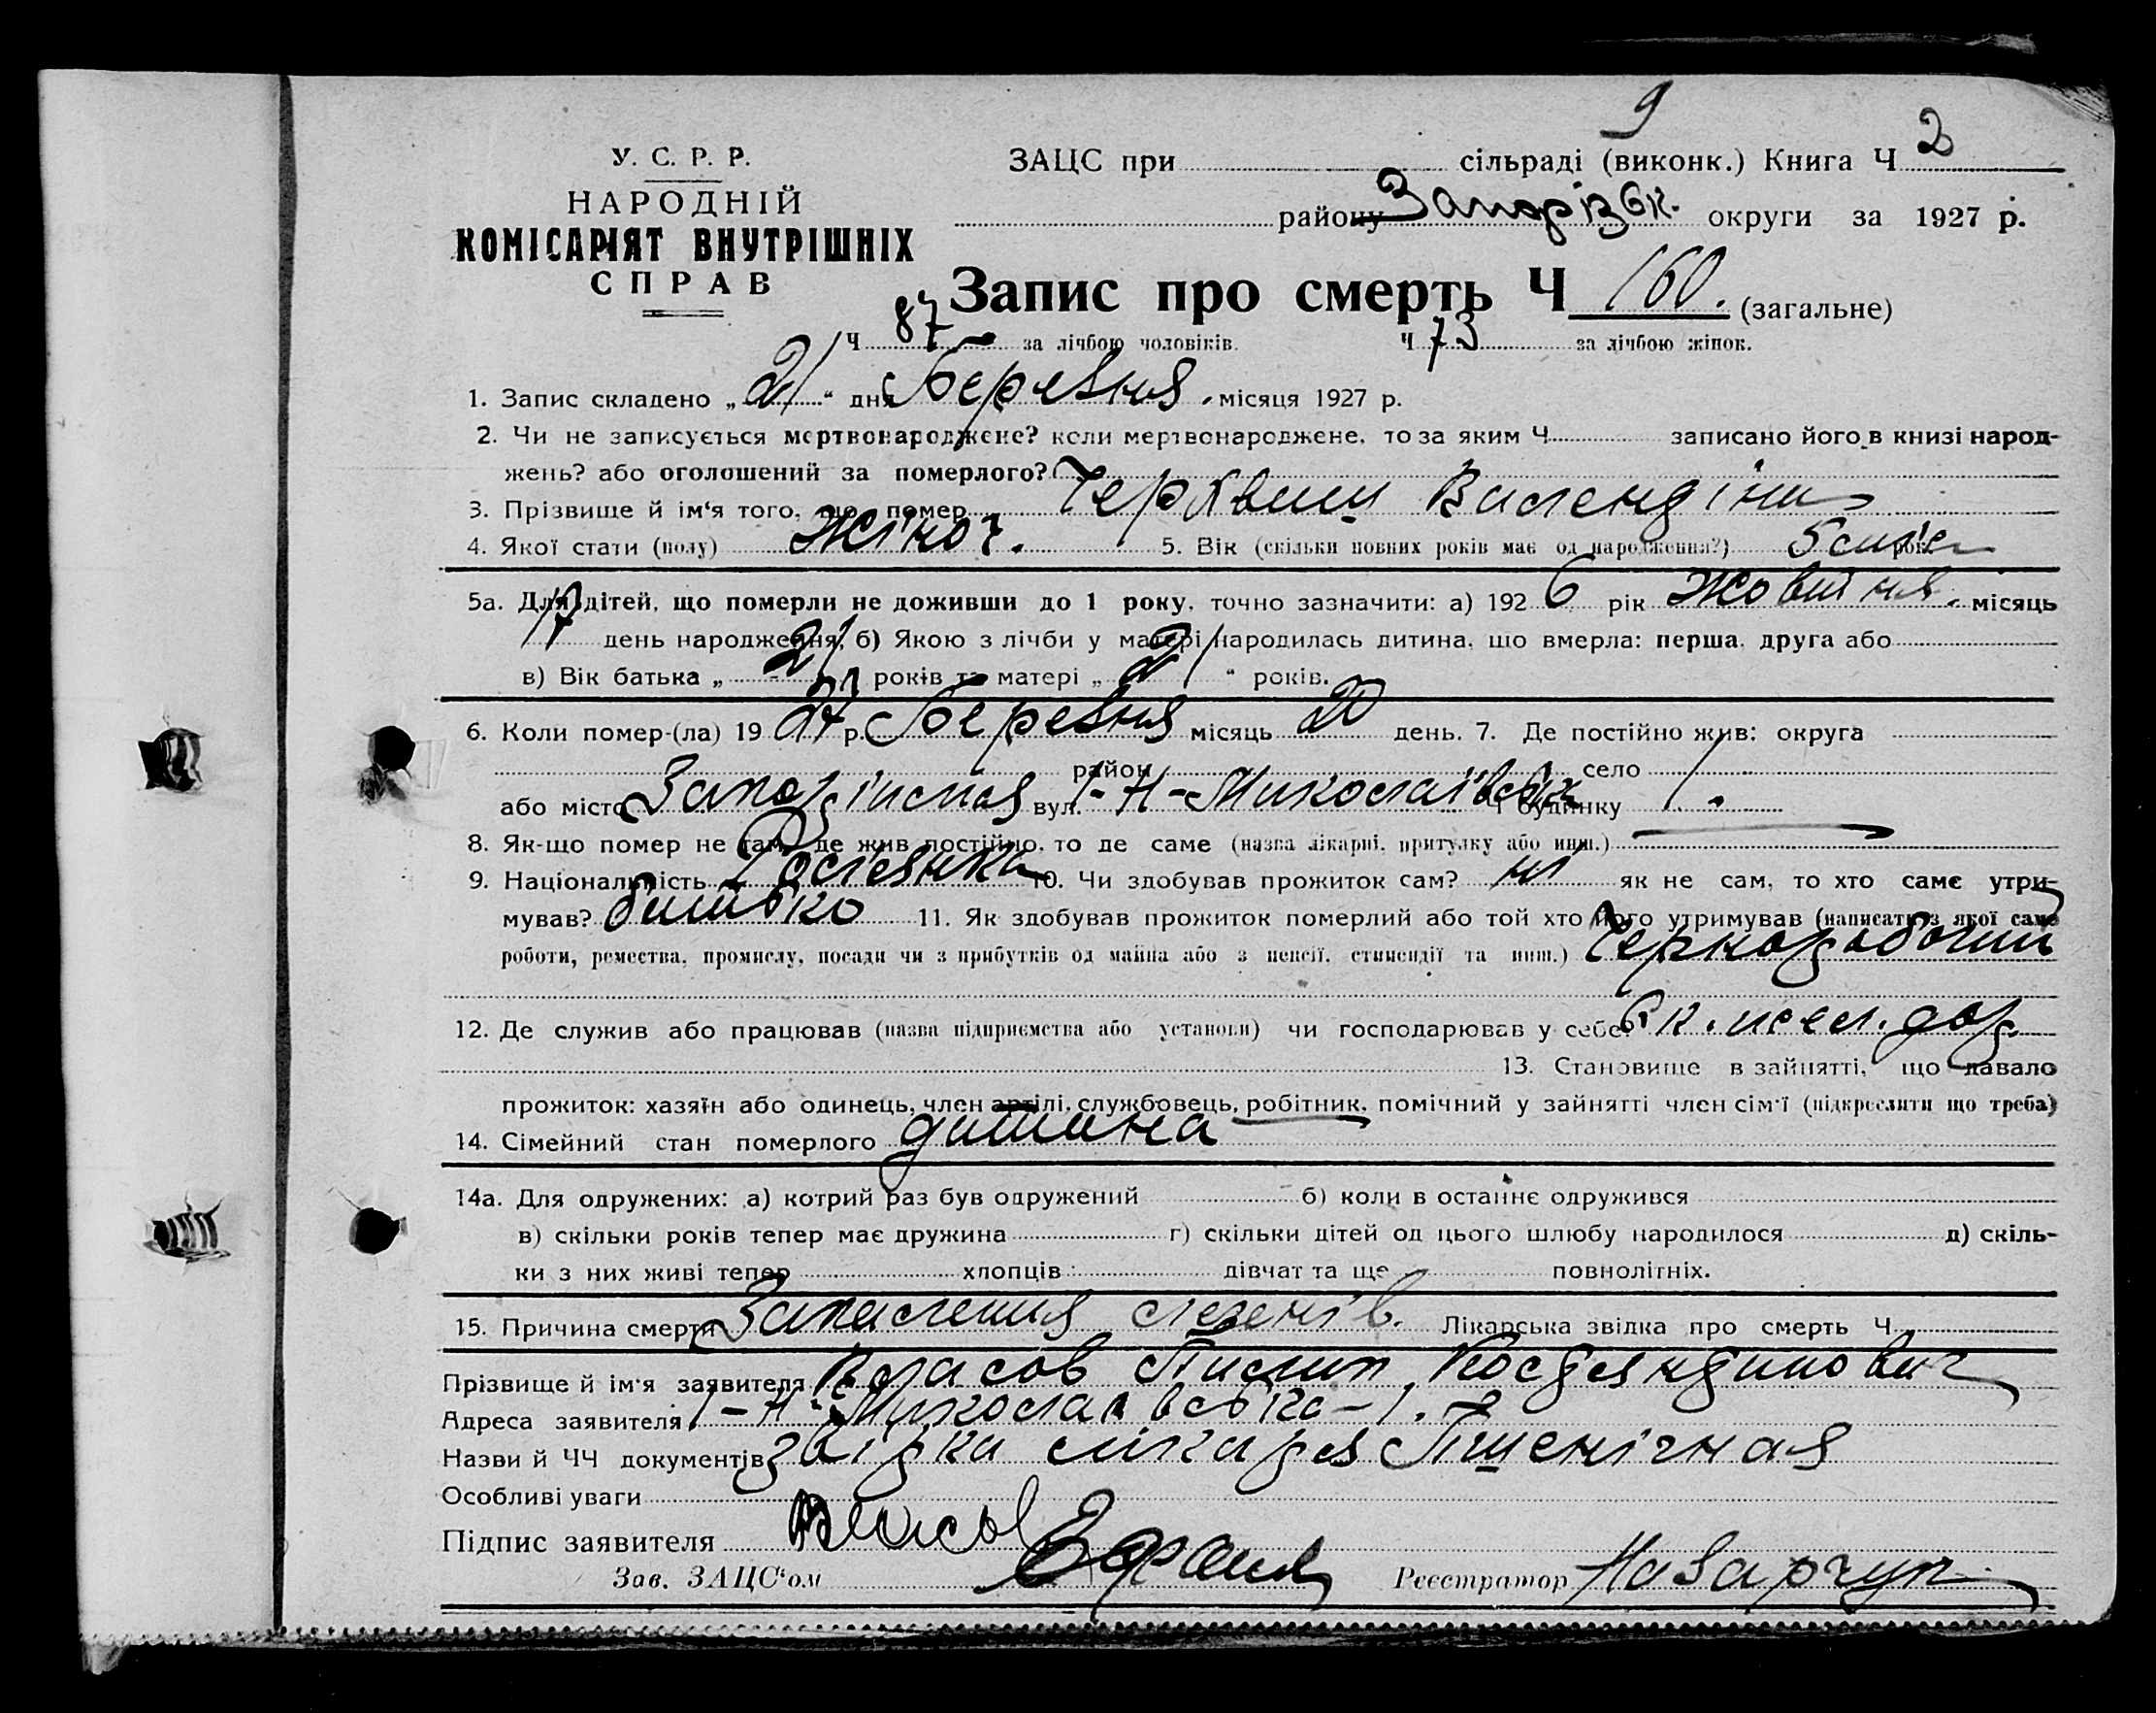 9
У. С. Р. Р.
НАРОДНІЙ
КОМІСАРІЯТ ВНУТРІШНІХ
СПРАВ
ЗАЦС при сільраді (виконк.) Книга Ч 2
району Запорізьк. округи за 1927 р.
Запис про смерть Ч 160. (загальне)
Ч 87 за лічбою чоловіків. Ч 73 за лічбою жінок.
1. Запис складено „21“ дня березня місяця 1927 р.
2. Чи не записується мертвонароджене? коли мертвонароджене, то за яким Ч записано його в книзі народ-
жень? або оголошений за померлого?
3. Прізвище й ім'я того, що помер Валендіна
4. Якої стати (полу) жіноч. 5. Вік (скільки повних років має од народження?) 5 рок.
5а. Для дітей, що померли не доживши до 1 року, точно зазначити: а) 1926 рік жовтня місяць
17 день народження, б) Якою з лічби у матері народилась дитина, що вмерла: перша, друга або
в) Вік батька „21 років та матері „21“ років.
6. Коли помер-(ла) 1927 р. березня місяць 20 день. 7. Де постійно жив: округа
район село
або місто Запоріжжя вул. 1-Н-Миколаївська Ч будинку 1.
8. Як-що помер не там, де жив постійно, то де саме (назва лікарні, притулку або инш.)
9. Національність Росіянка 10. Чи здобував прожиток сам? ні як не сам, то хто саме утри-
мував? батько 11. Як здобував прожиток померлий або той хто його утримував (написати з якої саме
роботи, ремества, промислу, посади чи з прибутків од майна або з пенсії, стипендії та инш.) Чернорабочий
12. Де служив або працював (назва підприємства або установи) чи господарював у себе?
13. Становище в зайнятті, що давало
прожиток: хазяїн або одинець, член артілі, службовець, робітник, помічний у зайнятті член сім'ї (підкреслити що треба)
14. Сімейний стан померлого дитина
14а. Для одружених: а) котрий раз був одружений б) коли в останнє одружився
в) скільки років тепер має дружина г) скільки дітей од цього шлюбу народилося д) скіль-
ки з них живі тепер хлопців дівчат та ще повнолітніх.
15. Причина смерти Запалення легенів. Лікарська звідка про смерть Ч
Прізвище й ім'я заявителя Власов
Адреса заявителя 1-Н-Миколаївська-1.
Назви й ЧЧ документів звідка лікаря Пшенічная
Особливі уваги
Підпис заявителя Власов
Зав. ЗАЦС'ом Реєстратор